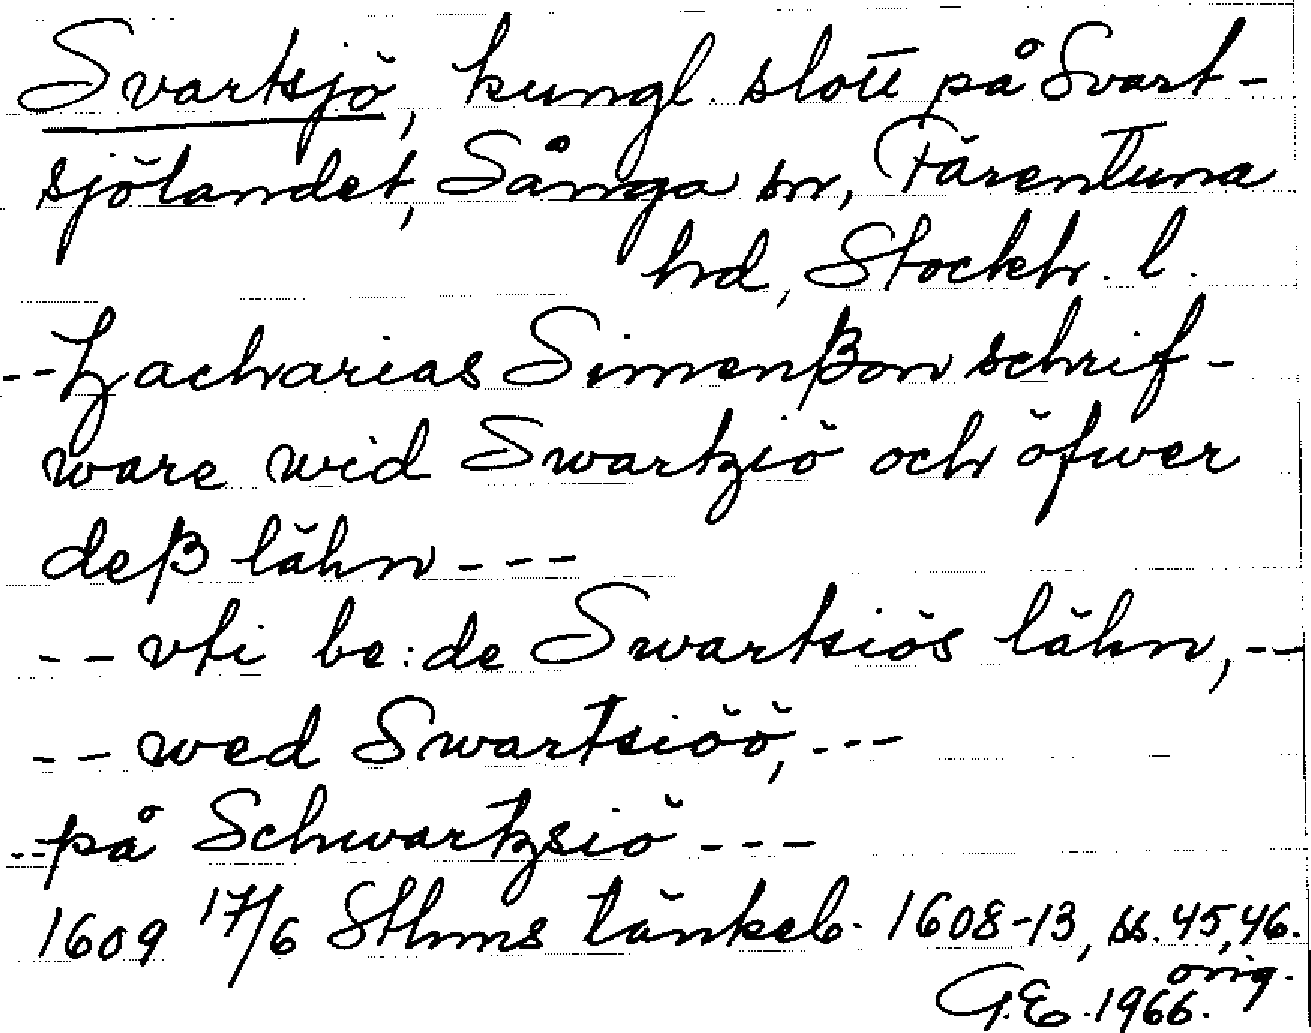 Svartsjö, kungl. slott på Svart-
sjölandet, Sånga sn, Färentuna
hd, Stockh. l.
-- Zacharias Simenßon schrif-
ware wid Swartziö och öfwer
deß lähn ---
-- vti be:de Swartsiös lähn, --
-- wed Swartsiöö, ---
-- på Schwartzsiö ---
1609 17/6 Sthms tänkeb. 1608-13, ss. 45, 46.
orig.
G.E. 1966.